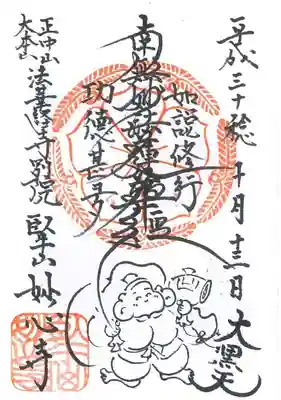 平成三十稔 十月十三日 大黒天
如説修行
南無妙法蓮華経
功徳甚多
正中山
大本山
法華経寺別院 妙心寺